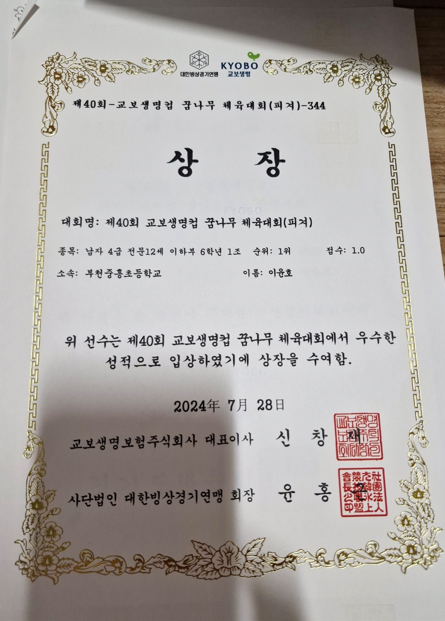 대한빙상경기연맹 KYOBO 교보생명
제40회-교보생명컵 꿈나무 체육대회(피겨)-344
상 장
대회명: 제40회 교보생명컵 꿈나무 체육대회(피겨)
종목: 남자 4급 전문12세 이하부 6학년 1조 순위: 1위 점수: 1.0
소속: 부천중흥초등학교 이름: 이윤호
위 선수는 제40회 교보생명컵 꿈나무 체육대회에서 우수한
성적으로 입상하였기에 상장을 수여함.
2024年 7月 28日
교보생명보험주식회사 대표이사 신 창 재
사단법인 대한빙상경기연맹 회장 윤 홍 근